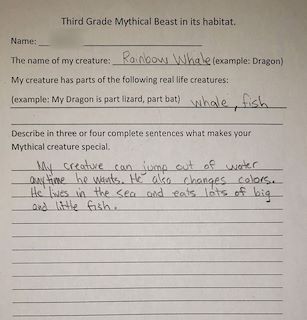 Third Grade Mythical Beast in its habitat.
Name:
The name of my creature: Rainbow Whale (example: Dragon)
My creature has parts of the following real life creatures:
(example: My Dragon is part lizard, part bat) whale, fish
Describe in three or four complete sentences what makes your
Mythical creature special.
My creature can jump out of water
anytime he wants. He also changes colors.
He lives in the sea and eats lots of big
and little fish.